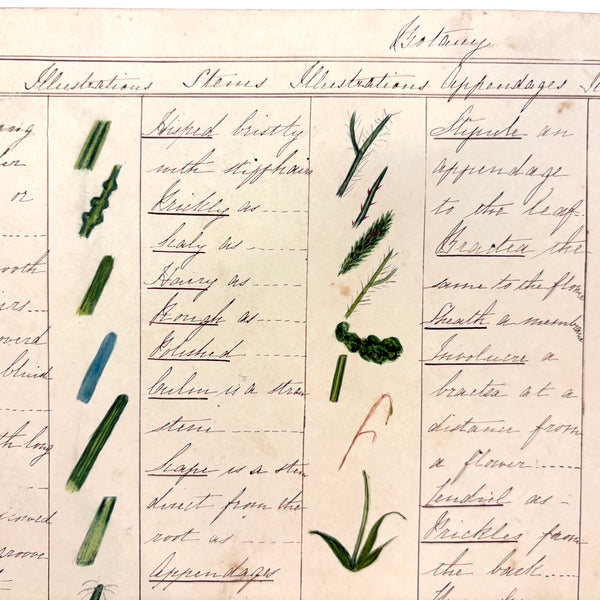 Botany
Illustrations Stems Illustrations Appendages
or
Hisped bristly
with stiffhairs
Prickly as
Scaly as
Hairy as
Rough as
Polished
Culm is a straw
stem
Scape is a stem
direct from the
root as
Appendages
Stipule an
appendage
to the leaf
Bractea the
same to the flower
Sheath a membrane
Involucre a
bractea at a
distance from
a flower
Tendril as
Prickles from
the bark